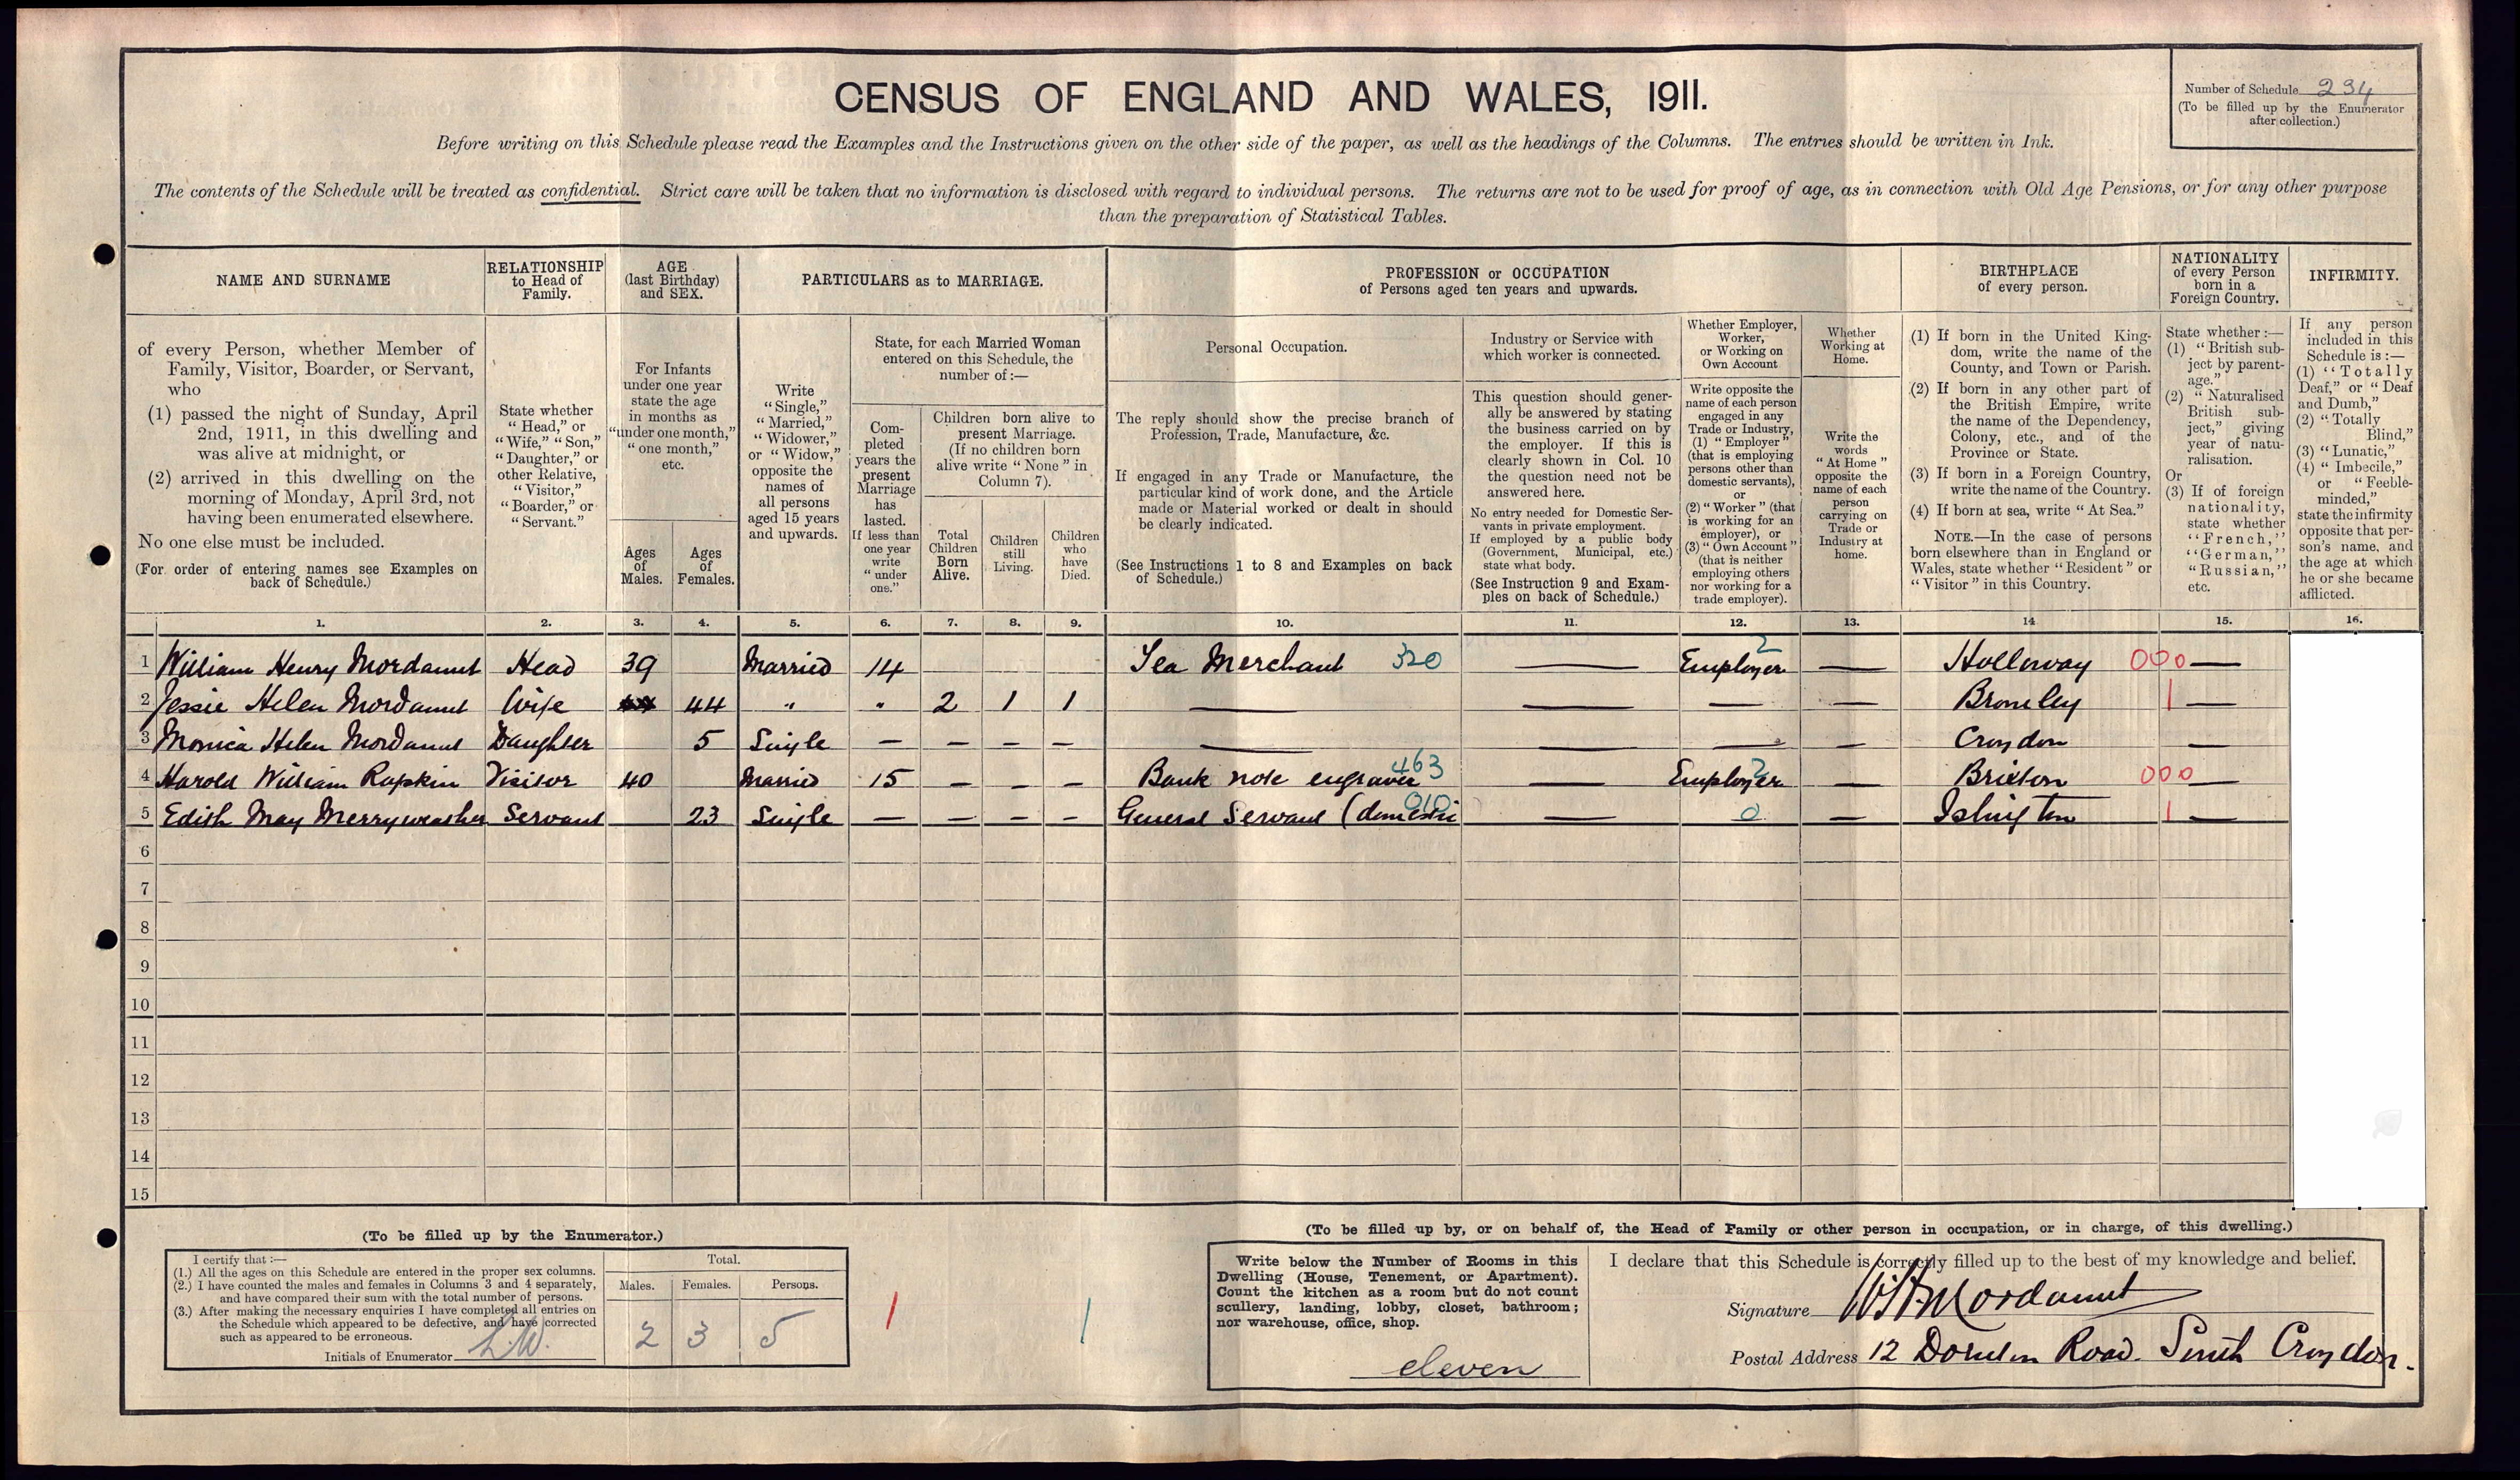 CENSUS OF ENGLAND AND WALES, 1911.
Number of Schedule 234
(To be filled up by the Enumerator
after collection.)
Before writing on this Schedule please read the Examples and the Instructions given on the other side of the paper, as well as the headings of the Columns. The entries should be written in Ink.
The contents of the Schedule will be treated as confidential. Strict care will be taken that no information is disclosed with regard to individual persons. The returns are not to be used for proof of age, as in connection with Old Age Pensions, or for any other purpose
than the preparation of Statistical Tables.
NAME AND SURNAME
of every Person, whether Member of
Family, Visitor, Boarder, or Servant,
who
(1) passed the night of Sunday, April
2nd, 1911, in this dwelling and
was alive at midnight, or
(2) arrived in this dwelling on the
morning of Monday, April 3rd, not
having been enumerated elsewhere.
No one else must be included.
(For order of entering names see Examples on
back of Schedule.)
RELATIONSHIP
to Head of
Family.
State whether
"Head," or
"Wife," "Son,"
"Daughter," or
other Relative,
"Visitor,"
"Boarder," or
"Servant."
AGE
(last Birthday)
and SEX.
For Infants
under one year
state the age
in months as
"under one month,"
"one month,"
etc.
Ages
of
Males.
Ages
of
Females.
PARTICULARS as to MARRIAGE.
Write
"Single,"
"Married,"
"Widower,"
or "Widow,"
opposite the
names of
all persons
aged 15 years
and upwards.
State, for each Married Woman
entered on this Schedule, the
number of:—
Com-
pleted
years the
present
Marriage
has
lasted.
If less than
one year
write
"under
one."
Children born alive to
present Marriage.
(If no children born
alive write "None" in
Column 7).
Total
Children
Born
Alive.
Children
still
Living.
Children
who
have
Died.
PROFESSION or OCCUPATION
of Persons aged ten years and upwards.
Personal Occupation.
The reply should show the precise branch of
Profession, Trade, Manufacture, &c.
If engaged in any Trade or Manufacture, the
particular kind of work done, and the Article
made or Material worked or dealt in should
be clearly indicated.
(See Instructions 1 to 8 and Examples on back
of Schedule.)
Industry or Service with
which worker is connected.
This question should gener-
ally be answered by stating
the business carried on by
the employer. If this is
clearly shown in Col. 10
the question need not be
answered here.
No entry needed for Domestic Ser-
vants in private employment.
If employed by a public body
(Government, Municipal, etc.)
state what body.
(See Instruction 9 and Exam-
ples on back of Schedule.)
Whether Employer,
Worker,
or Working on
Own Account
Write opposite the
name of each person
engaged in any
Trade or Industry,
(1) "Employer"
(that is employing
persons other than
domestic servants),
or
(2) "Worker" (that
is working for an
employer), or
(3) "Own Account"
(that is neither
employing others
nor working for a
trade employer).
Whether
Working at
Home.
Write the
words
"At Home"
opposite the
name of each
person
carrying on
Trade or
Industry at
home.
BIRTHPLACE
of every person.
(1) If born in the United King-
dom, write the name of the
County, and Town or Parish.
(2) If born in any other part of
the British Empire, write
the name of the Dependency,
Colony, etc., and of the
Province or State.
(3) If born in a Foreign Country,
write the name of the Country.
(4) If born at sea, write "At Sea."
NOTE.—In the case of persons
born elsewhere than in England or
Wales, state whether "Resident" or
"Visitor" in this Country.
NATIONALITY
of every Person
born in a
Foreign Country.
State whether:—
(1) "British sub-
ject by parent-
age."
(2) "Naturalised
British sub-
ject," giving
year of natu-
ralisation.
Or
(3) If of foreign
nationality,
state whether
"French,"
"German,"
"Russian,"
etc.
INFIRMITY.
If any person
included in this
Schedule is:—
(1) "Totally
Deaf," or "Deaf
and Dumb,"
(2) "Totally
Blind,"
(3) "Lunatic,"
(4) "Imbecile,"
or "Feeble-
minded,"
state the infirmity
opposite that per-
son's name, and
the age at which
he or she became
afflicted.
1. 2. 3. 4. 5. 6. 7. 8. 9. 10. 11. 12. 13. 14 15. 16.
1 William Henry Mordaunt Head 39 Married 14 Tea Merchant 320 — Employer 2 — Holloway 000 —
2 Jessie Helen Mordaunt Wife 44 " " 2 1 1 — — — — Bromley 1 —
3 Monica Helen Mordaunt Daughter 5 Single — — — — — — — — Croydon —
4 Harold William Rapkin Visitor 40 Married 15 — — — Bank note engraver 463 — Employer 2 — Brixton 000 —
5 Edith May Merryweather Servant 23 Single — — — — General Servant (domestic 010 — 0 — Islington 1 —
6
7
8
9
10
11
12
13
14
15
(To be filled up by the Enumerator.)
I certify that:—
(1.) All the ages on this Schedule are entered in the proper sex columns.
(2.) I have counted the males and females in Columns 3 and 4 separately,
and have compared their sum with the total number of persons.
(3.) After making the necessary enquiries I have completed all entries on
the Schedule which appeared to be defective, and have corrected
such as appeared to be erroneous.
Initials of Enumerator
Total.
Males. Females. Persons.
2 3 5
(To be filled up by, or on behalf of, the Head of Family or other person in occupation, or in charge, of this dwelling.)
Write below the Number of Rooms in this
Dwelling (House, Tenement, or Apartment).
Count the kitchen as a room but do not count
scullery, landing, lobby, closet, bathroom;
nor warehouse, office, shop.
eleven
I declare that this Schedule is correctly filled up to the best of my knowledge and belief.
Signature WH Mordaunt
Postal Address 12 Road. South Croydon.